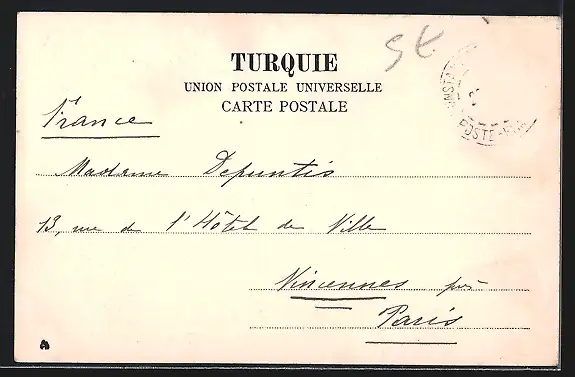 St.
TURQUIE
UNION POSTALE UNIVERSELLE
CARTE POSTALE
France
Madame Depuntis
13, rue de l'Hôtel de Ville
Vincennes près
Paris